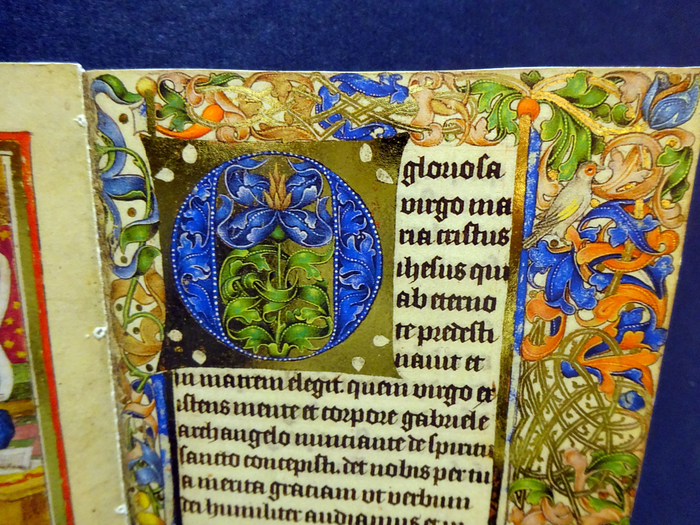 O gloriosa
virgo ma
ria cristus
ihesus qui
ab eterno
te predesti
nauit et
in matrem elegit quem virgo ex
istens mente et corpore gabriele
archangelo nunciante de spiritu
sancto concepisti. det nobis per tu
a merita graciam vt verbum
dei humiliter audiamus et in